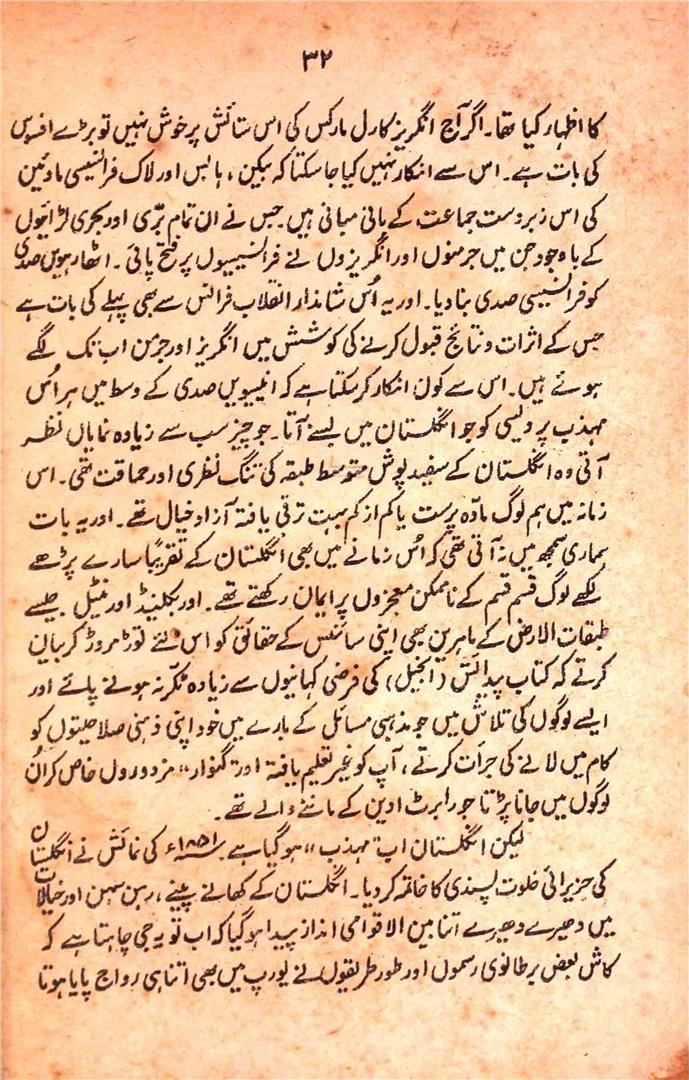 ۳۲
کا اظہار کیا تھا۔ اگر آج انگریز کارل مارکس کی اس ستائش پر خوش نہیں تو بڑے افسوس
کی بات ہے۔ اس سے انکار نہیں کیا جا سکتا کہ بیکن، ہابس اور لاک فرانسیسی مادئین
کی اس زبردست جماعت کے بانی مبانی ہیں۔ جس نے ان تمام برّی اور بحری لڑائیوں
کے باوجود جن میں جرمنوں اور انگریزوں نے فرانسیسیوں پر فتح پائی۔ اٹھارہویں صدی
کو فرانسیسی صدی بنا دیا۔ اور یہ اُس شاندار انقلاب فرانس سے بھی پہلے کی بات ہے
جس کے اثرات و نتائج قبول کرنے کی کوشش میں انگریز اور جرمن اب تک لگے
ہوئے ہیں۔ اس سے کون انکار کر سکتا ہے کہ انیسویں صدی کے وسط میں ہر اُس
مہذب پردیسی کو جو انگلستان میں بسنے آتا۔ جو چیز سب سے زیادہ نمایاں نظر
آتی وہ انگلستان کے سفید پوش متوسط طبقہ کی تنگ نظری اور حماقت تھی۔ اس
زمانہ میں ہم لوگ مادّہ پرست یا کم از کم بہت ترقی یافتہ آزاد خیال تھے۔ اور یہ بات
ہماری سمجھ میں نہ آتی تھی کہ اُس زمانے میں بھی انگلستان کے تقریباً سارے پڑھے
لکھے لوگ قسم قسم کے ناممکن معجزوں پر ایمان رکھتے تھے۔ اور بکلینڈ اور منٹیل جیسے
طبقات الارض کے ماہرین بھی اپنی سائنس کے حقائق کو اس لئے توڑ مروڑ کر بیان
کرتے کہ کتاب پیدائش (انجیل) کی فرضی کہانیوں سے زیادہ ٹکر نہ ہونے پائے اور
ایسے لوگوں کی تلاش میں جو مذہبی مسائل کے بارے میں خود اپنی ذہنی صلاحیتوں کو
کام میں لانے کی جرأت کرتے، آپ کو غیر تعلیم یافتہ اور "گنوار" مزدورول خاص کر اُن
لوگوں میں جانا پڑتا جو رابرٹ اوین کے ماننے والے تھے۔
لیکن انگلستان اب "مہذب" ہو گیا ہے۔ ۱۸۵۱ء کی نمائش نے انگلستان
کی جزیرائی خلوت پسندی کا خاتمہ کر دیا۔ انگلستان کے کھانے پینے، رہن سہن اور خیالات
میں دھیرے دھیرے اتنا بین الاقوامی انداز پیدا ہو گیا کہ اب تو یہ جی چاہتا ہے کہ
کاش بعض برطانوی رسموں اور طور طریقوں نے یورپ میں بھی اتنا ہی رواج پایا ہوتا